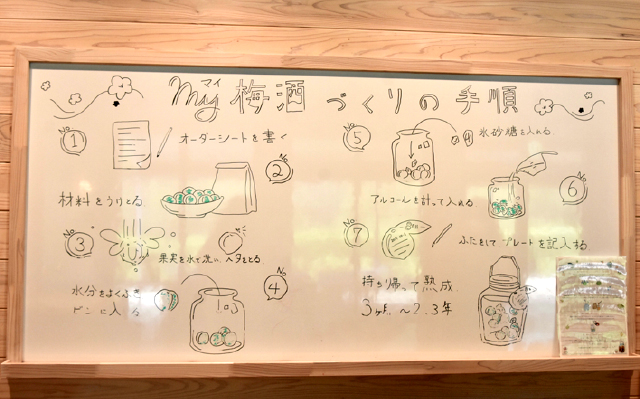 マイ
My 梅酒 づくりの手順
No
1
オーダーシートを書く
2
材料をうけとる
No
3
果実を水で洗い、ヘタをとる
No
4
水分をよくふき
ビンに入る
No
5
氷砂糖を入れる
No
6
アルコールを計って入れる
No
7
ふたをして プレートを記入する
持ち帰って熟成
〜2.3年